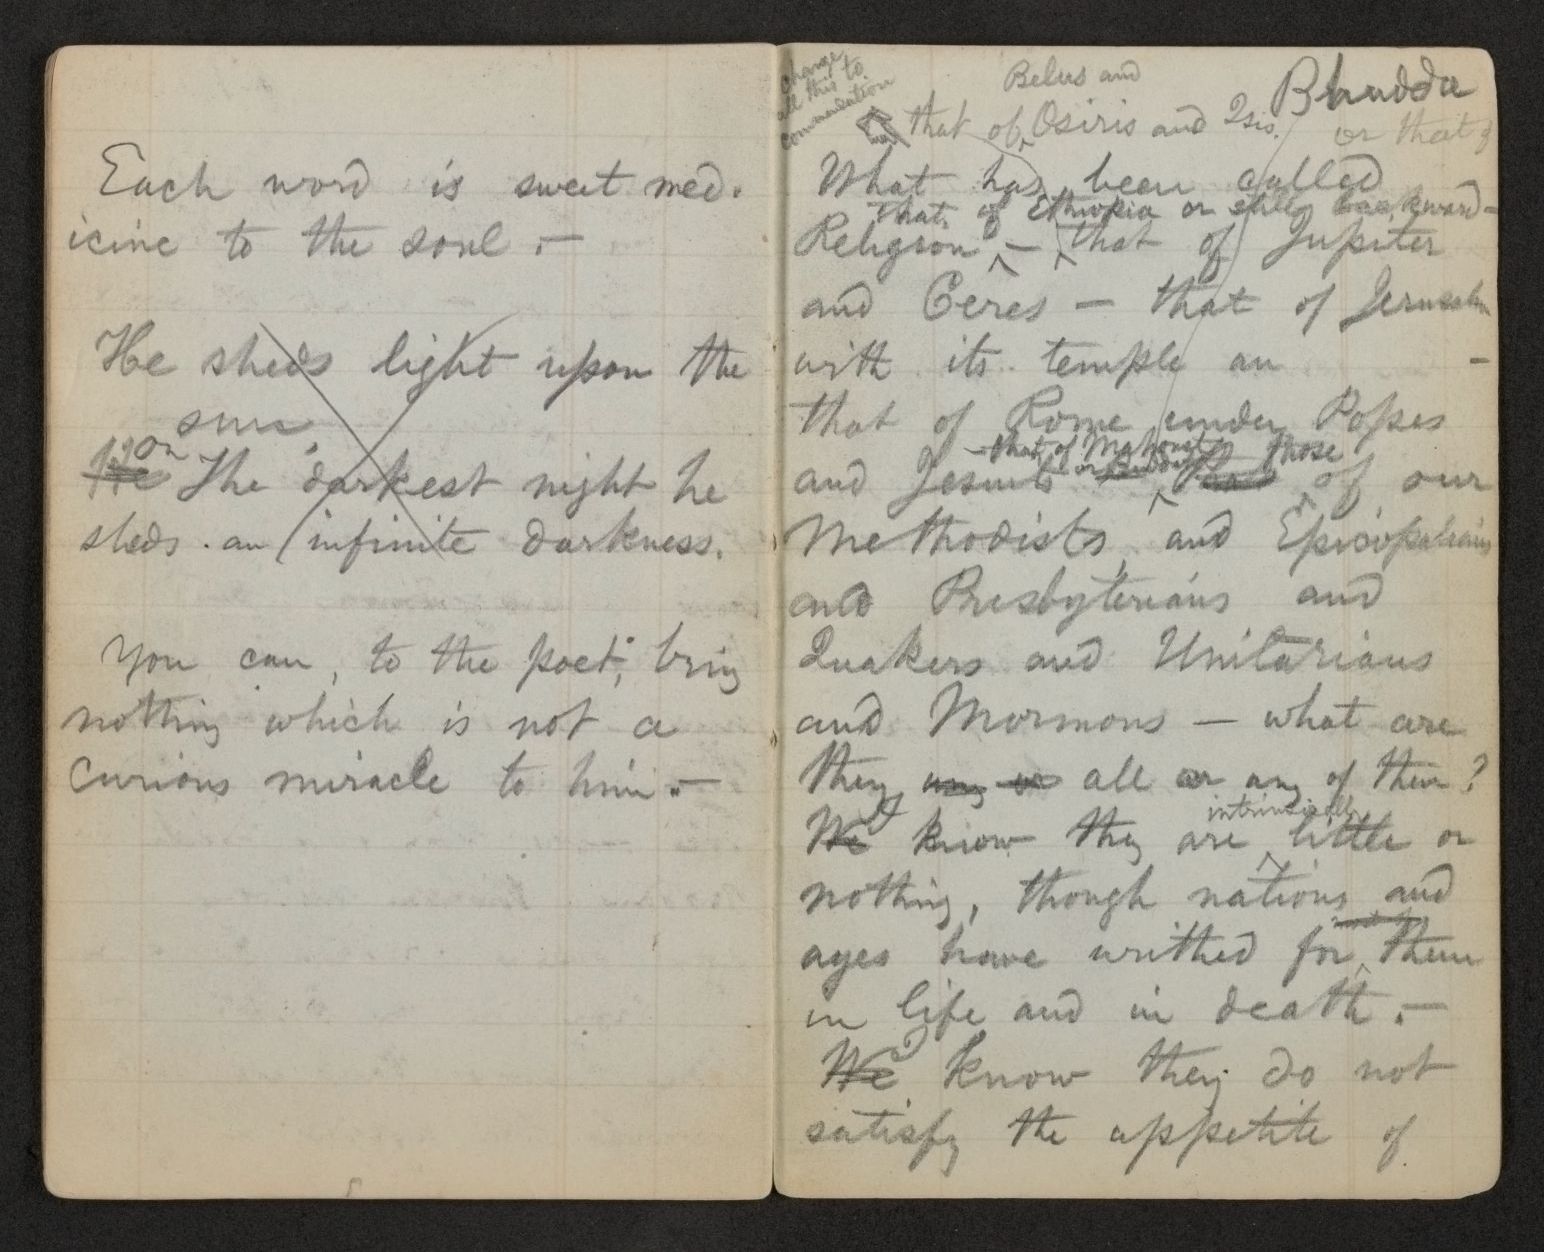 Each word is sweet med-
icine to the soul.—
He sheds light upon the
sun,
on
He The darkest night he
sheds an infinite darkness.
You can, to the poet, bring
nothing which is not a
curious miracle to him.—
change
all this to
commendation
Belus and
Bhudda
that of Osiris and Isis.
or that of
What has been called
that of Ethiopia or still backward—
Religion — that of Jupiter
and Ceres — that of Jerusalem
with its temple an —
that of Rome under Popes
—that of Mahomet those
or Budda
and Jesuits of our
Methodists, and Episcopalians
and Presbyterians and
Quakers and Unitarians
and Mormons — what are
they any or all or any of them?
intrinsically
I
We know they are little or
nothing, though nations and
ages have writhed for them
in life and in death.—
I
We know they do not
satisfy the appetite of